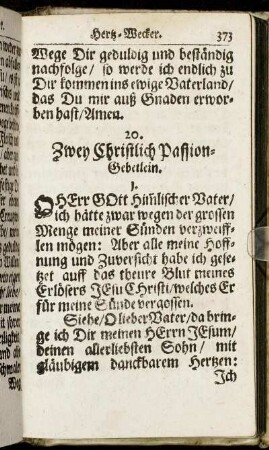 Hertz-Wecker. 373
Wege Dir geduldig und beständig
nachfolge / so werde ich endlich zu
Dir kommen ins ewige Vaterland /
das Du mir auß Gnaden erwor-
ben hast / Amen.
20.
Zwey Christlich Passion-
Gebetlein.
1.
O HErr GOtt Him̃lischer Vater /
ich hätte zwar wegen der grossen
Menge meiner Sünden verzweiff-
len mögen: Aber alle meine Hoff-
nung und Zuversicht habe ich gese-
tzet auff das theure Blut meines
Erlösers JEsu Christi / welches Er
für meine Sünde vergossen.
Siehe / O lieber Vater / da brin-
ge ich Dir meinen HErrn JEsum /
deinen allerliebsten Sohn / mit
gläubigem danckbarem Hertzen:
Ich